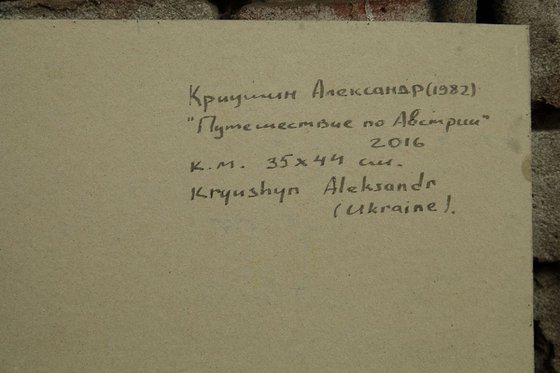 Криушин Александр (1982)
"Путешествие по Австрии"
2016
к.м. 35х44 см.
Kryushyn Aleksandr
(Ukraine).